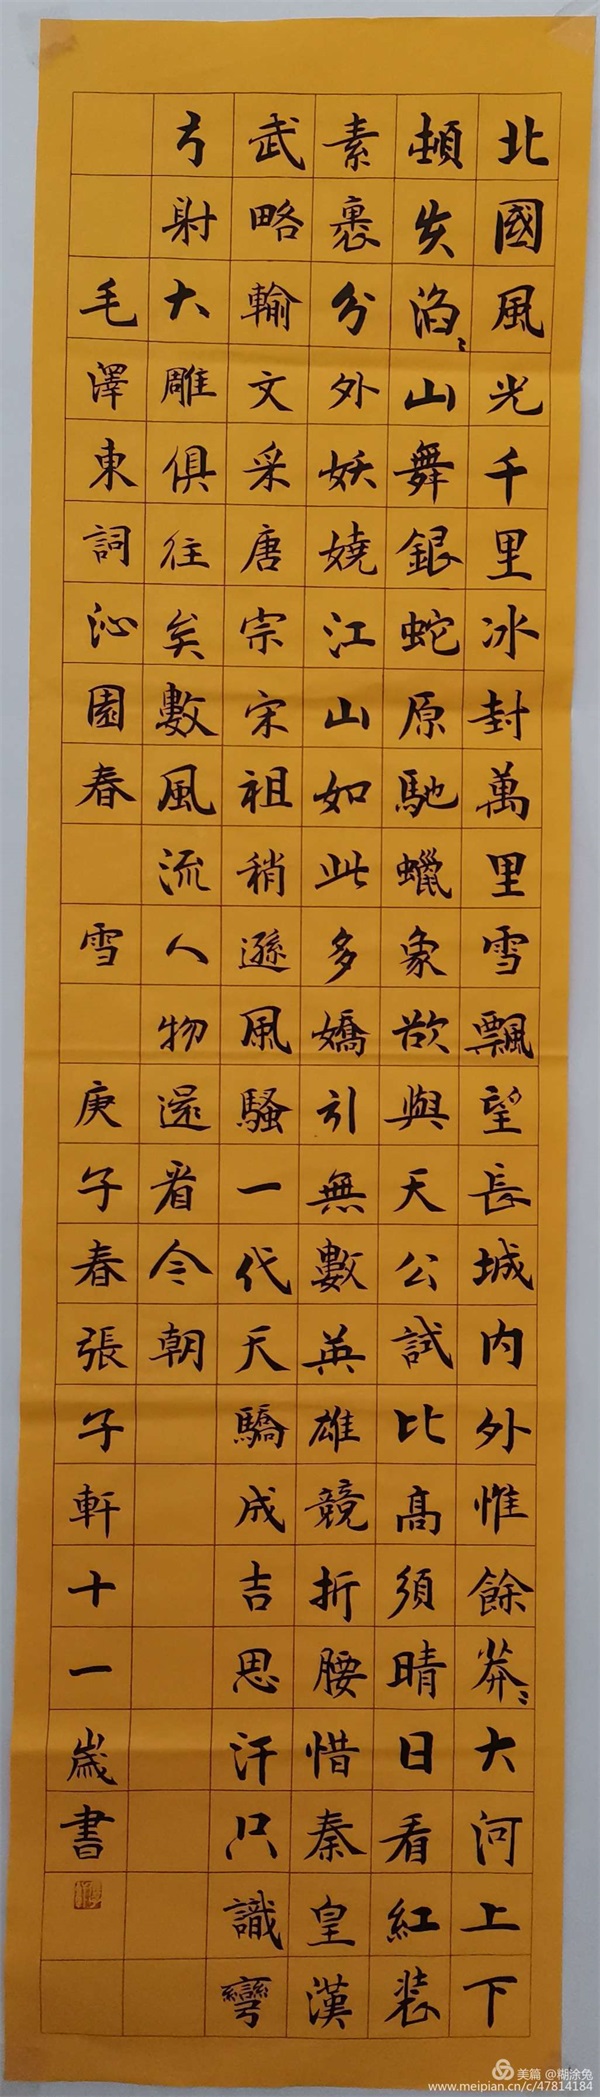 北國風光千里冰封萬里雪飄望長城内外惟餘莽〻大河上下
頓失滔〻山舞銀蛇原馳蠟象欲與天公試比高須晴日看紅装
素裹分外妖嬈江山如此多嬌引無數英雄競折腰惜秦皇漢
武略輸文采唐宗宋祖稍遜風騷一代天驕成吉思汗只識彎
弓射大雕俱往矣數風流人物還看今朝
毛澤東詞沁園春 雪 庚子春張子軒十一歲書
美篇 @糊涂兔
www.meipian.cn/c/47814184